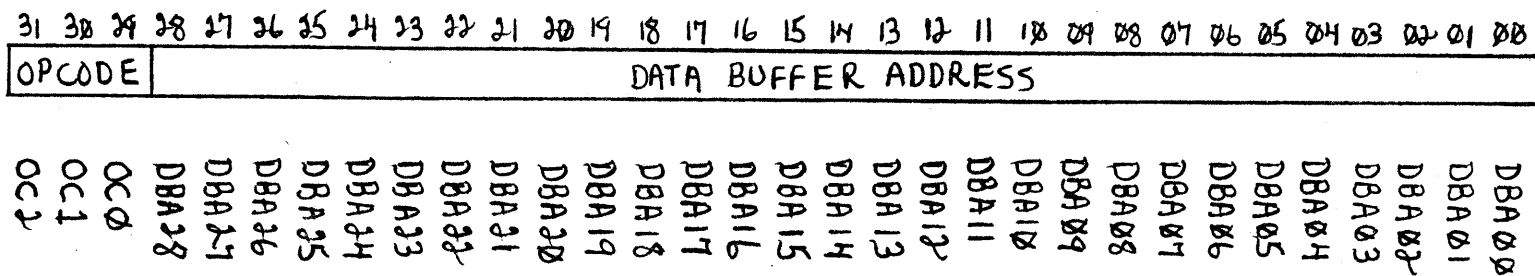 31 30 29 28 27 26 25 24 23 22 21 20 19 18 17 16 15 14 13 12 11 10 09 08 07 06 05 04 03 02 01 00
OPCODE DATA BUFFER ADDRESS
OC2 OC1 OC0 DBA28 DBA27 DBA26 DBA25 DBA24 DBA23 DBA22 DBA21 DBA20 DBA19 DBA18 DBA17 DBA16 DBA15 DBA14 DBA13 DBA12 DBA11 DBA10 DBA09 DBA08 DBA07 DBA06 DBA05 DBA04 DBA03 DBA02 DBA01 DBA00